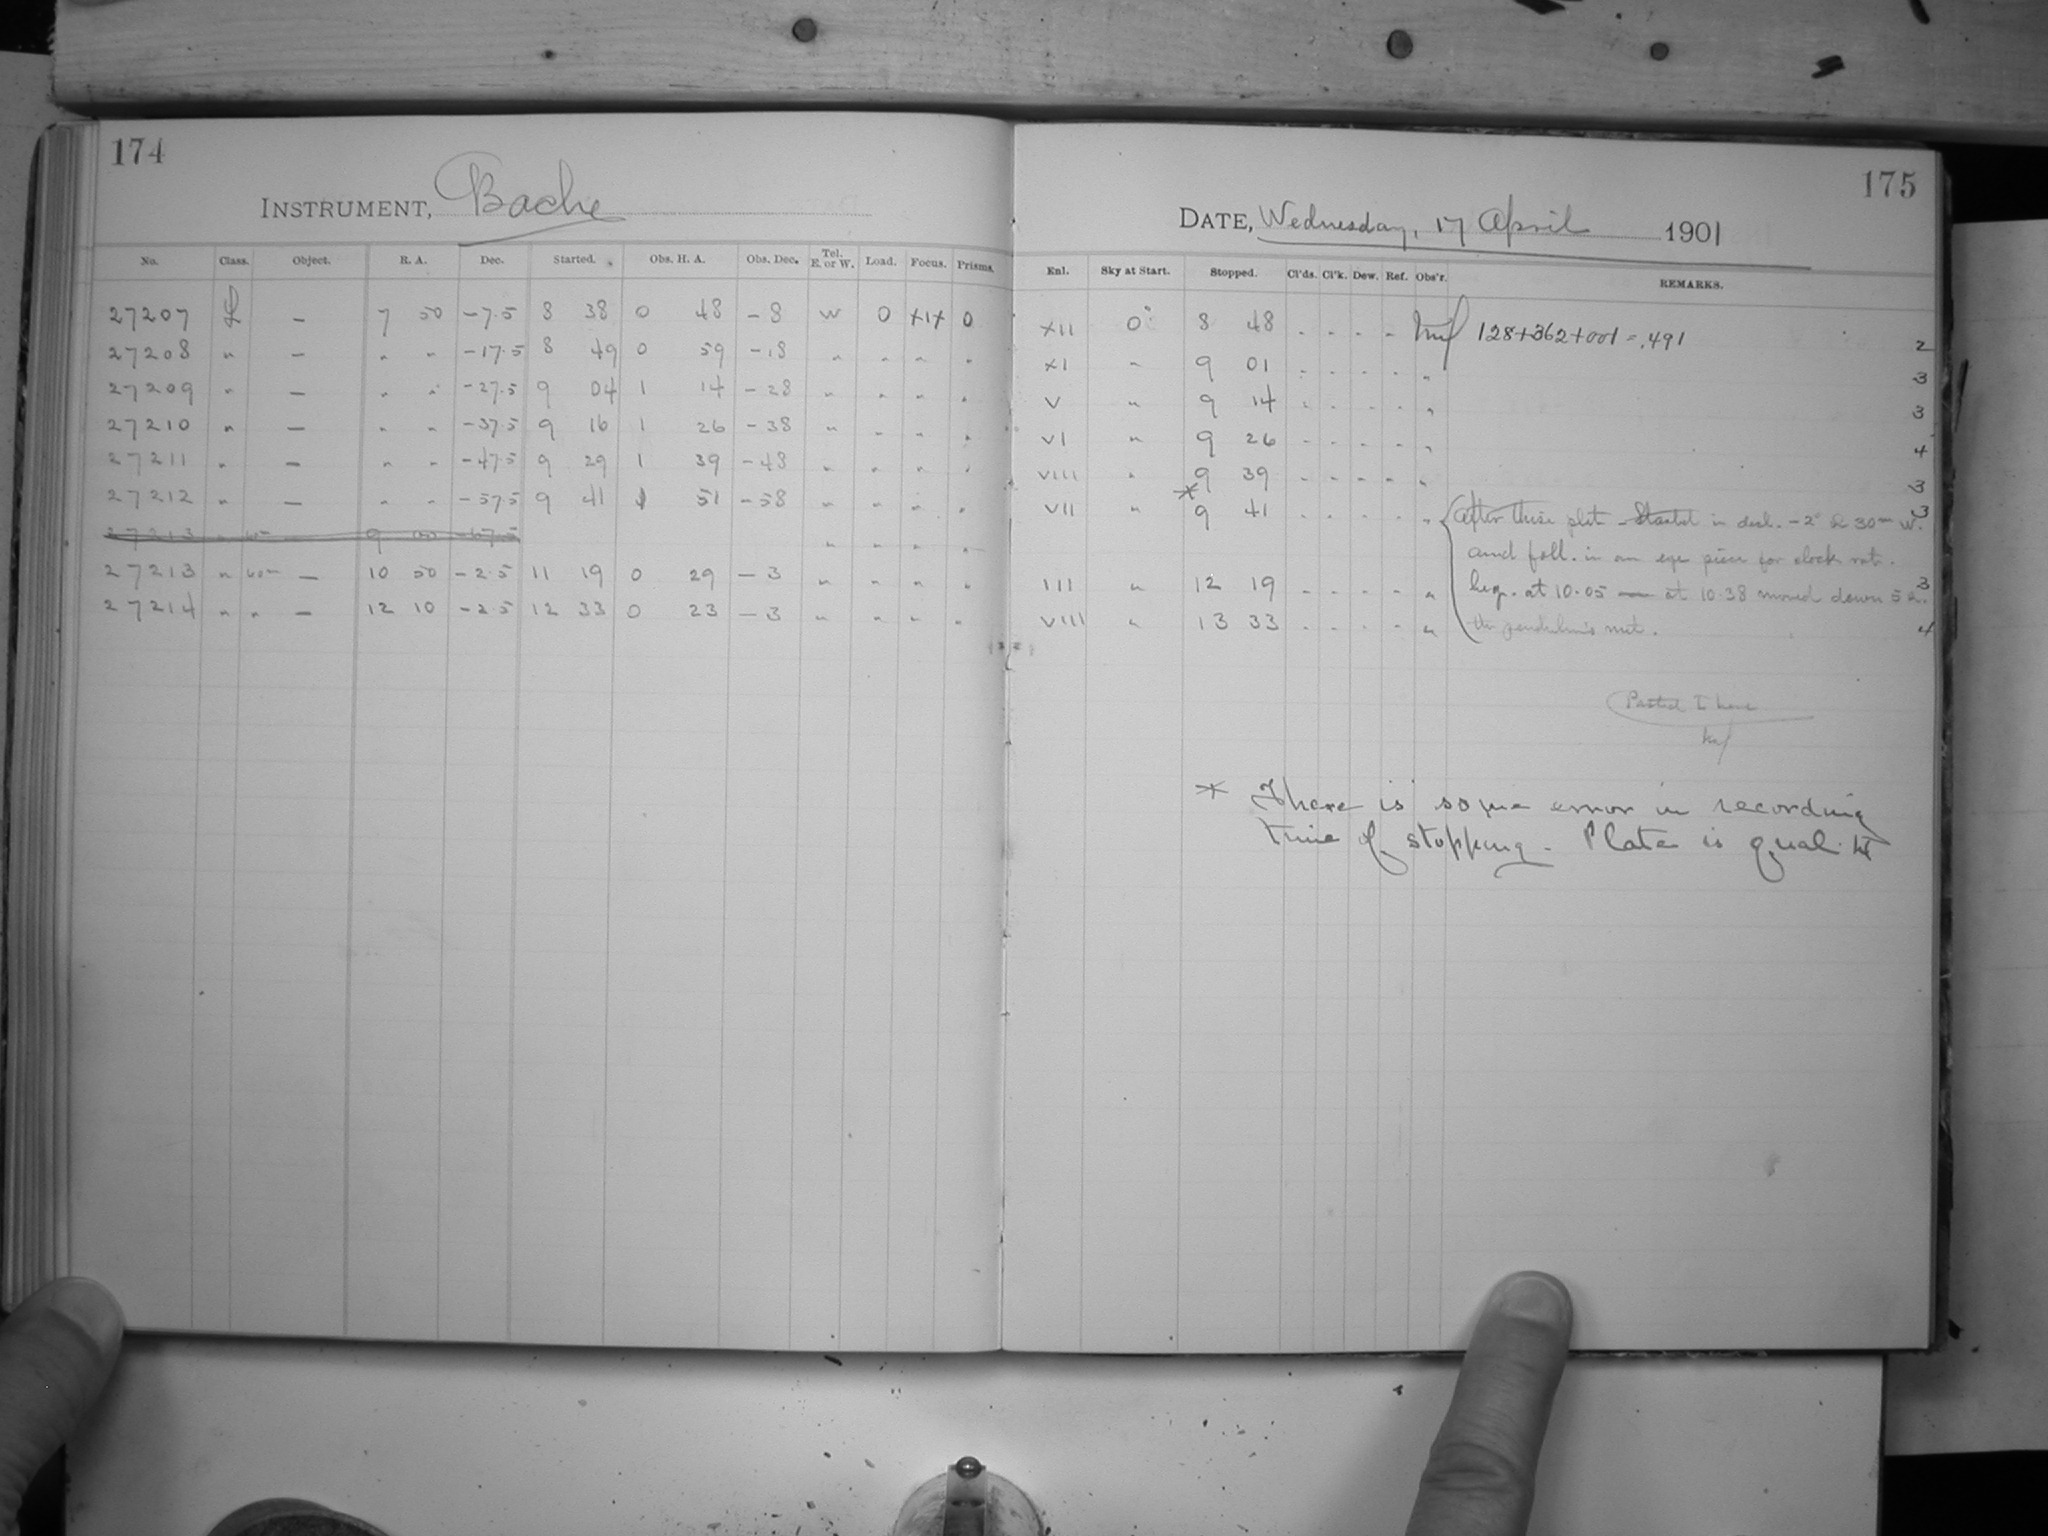 174
INSTRUMENT, Bache
No. Class. Object. R. A. Dec. Started. Obs. H. A. Obs. Dec. Tel. E. or W. Load. Focus. Prisms.
27207 L — 7 50 -7.5 8 38 0 48 -8 W 0 +1+ 0
27208 " — " " -17.5 8 49 0 59 -18 " " " "
27209 " — " " -27.5 9 04 1 14 -28 " " " "
27210 " — " " -37.5 9 16 1 26 -38 " " " "
27211 " — " " -47.5 9 29 1 39 -48 " " " "
27212 " — " " -57.5 9 41 1 51 -58 " " " "
27213 " 60m 9 00 -67.5 " " " "
27213 " 60m — 10 50 -2.5 11 19 0 29 -3 " " " "
27214 " " — 12 10 -2.5 12 33 0 23 -3 " " " "
175
DATE, Wednesday, 17 April 1901
Enl. Sky at Start. Stopped. Cl'ds. Cl'k. Dew. Ref. Obs'r. REMARKS.
XII 0° 8 48 - - - - 128+362+001=.491 2
XI " 9 01 - - - - " 3
V " 9 14 - - - - " 3
VI " 9 26 - - - - " 4
VIII " 9 39 - - - - " 3
VII " * 9 41 - - - - " After this plat - Started in decl. -2° & 30m W. 3
and foll. in an eye piece for clock rate.
III " 12 19 - - - - " beg. at 10.05 — at 10.38 moved down 5 3
VIII " 13 33 - - - - " the pendulum's nut. 4
Posted to here
* There is some error in recording
time of stopping. Plate is quality